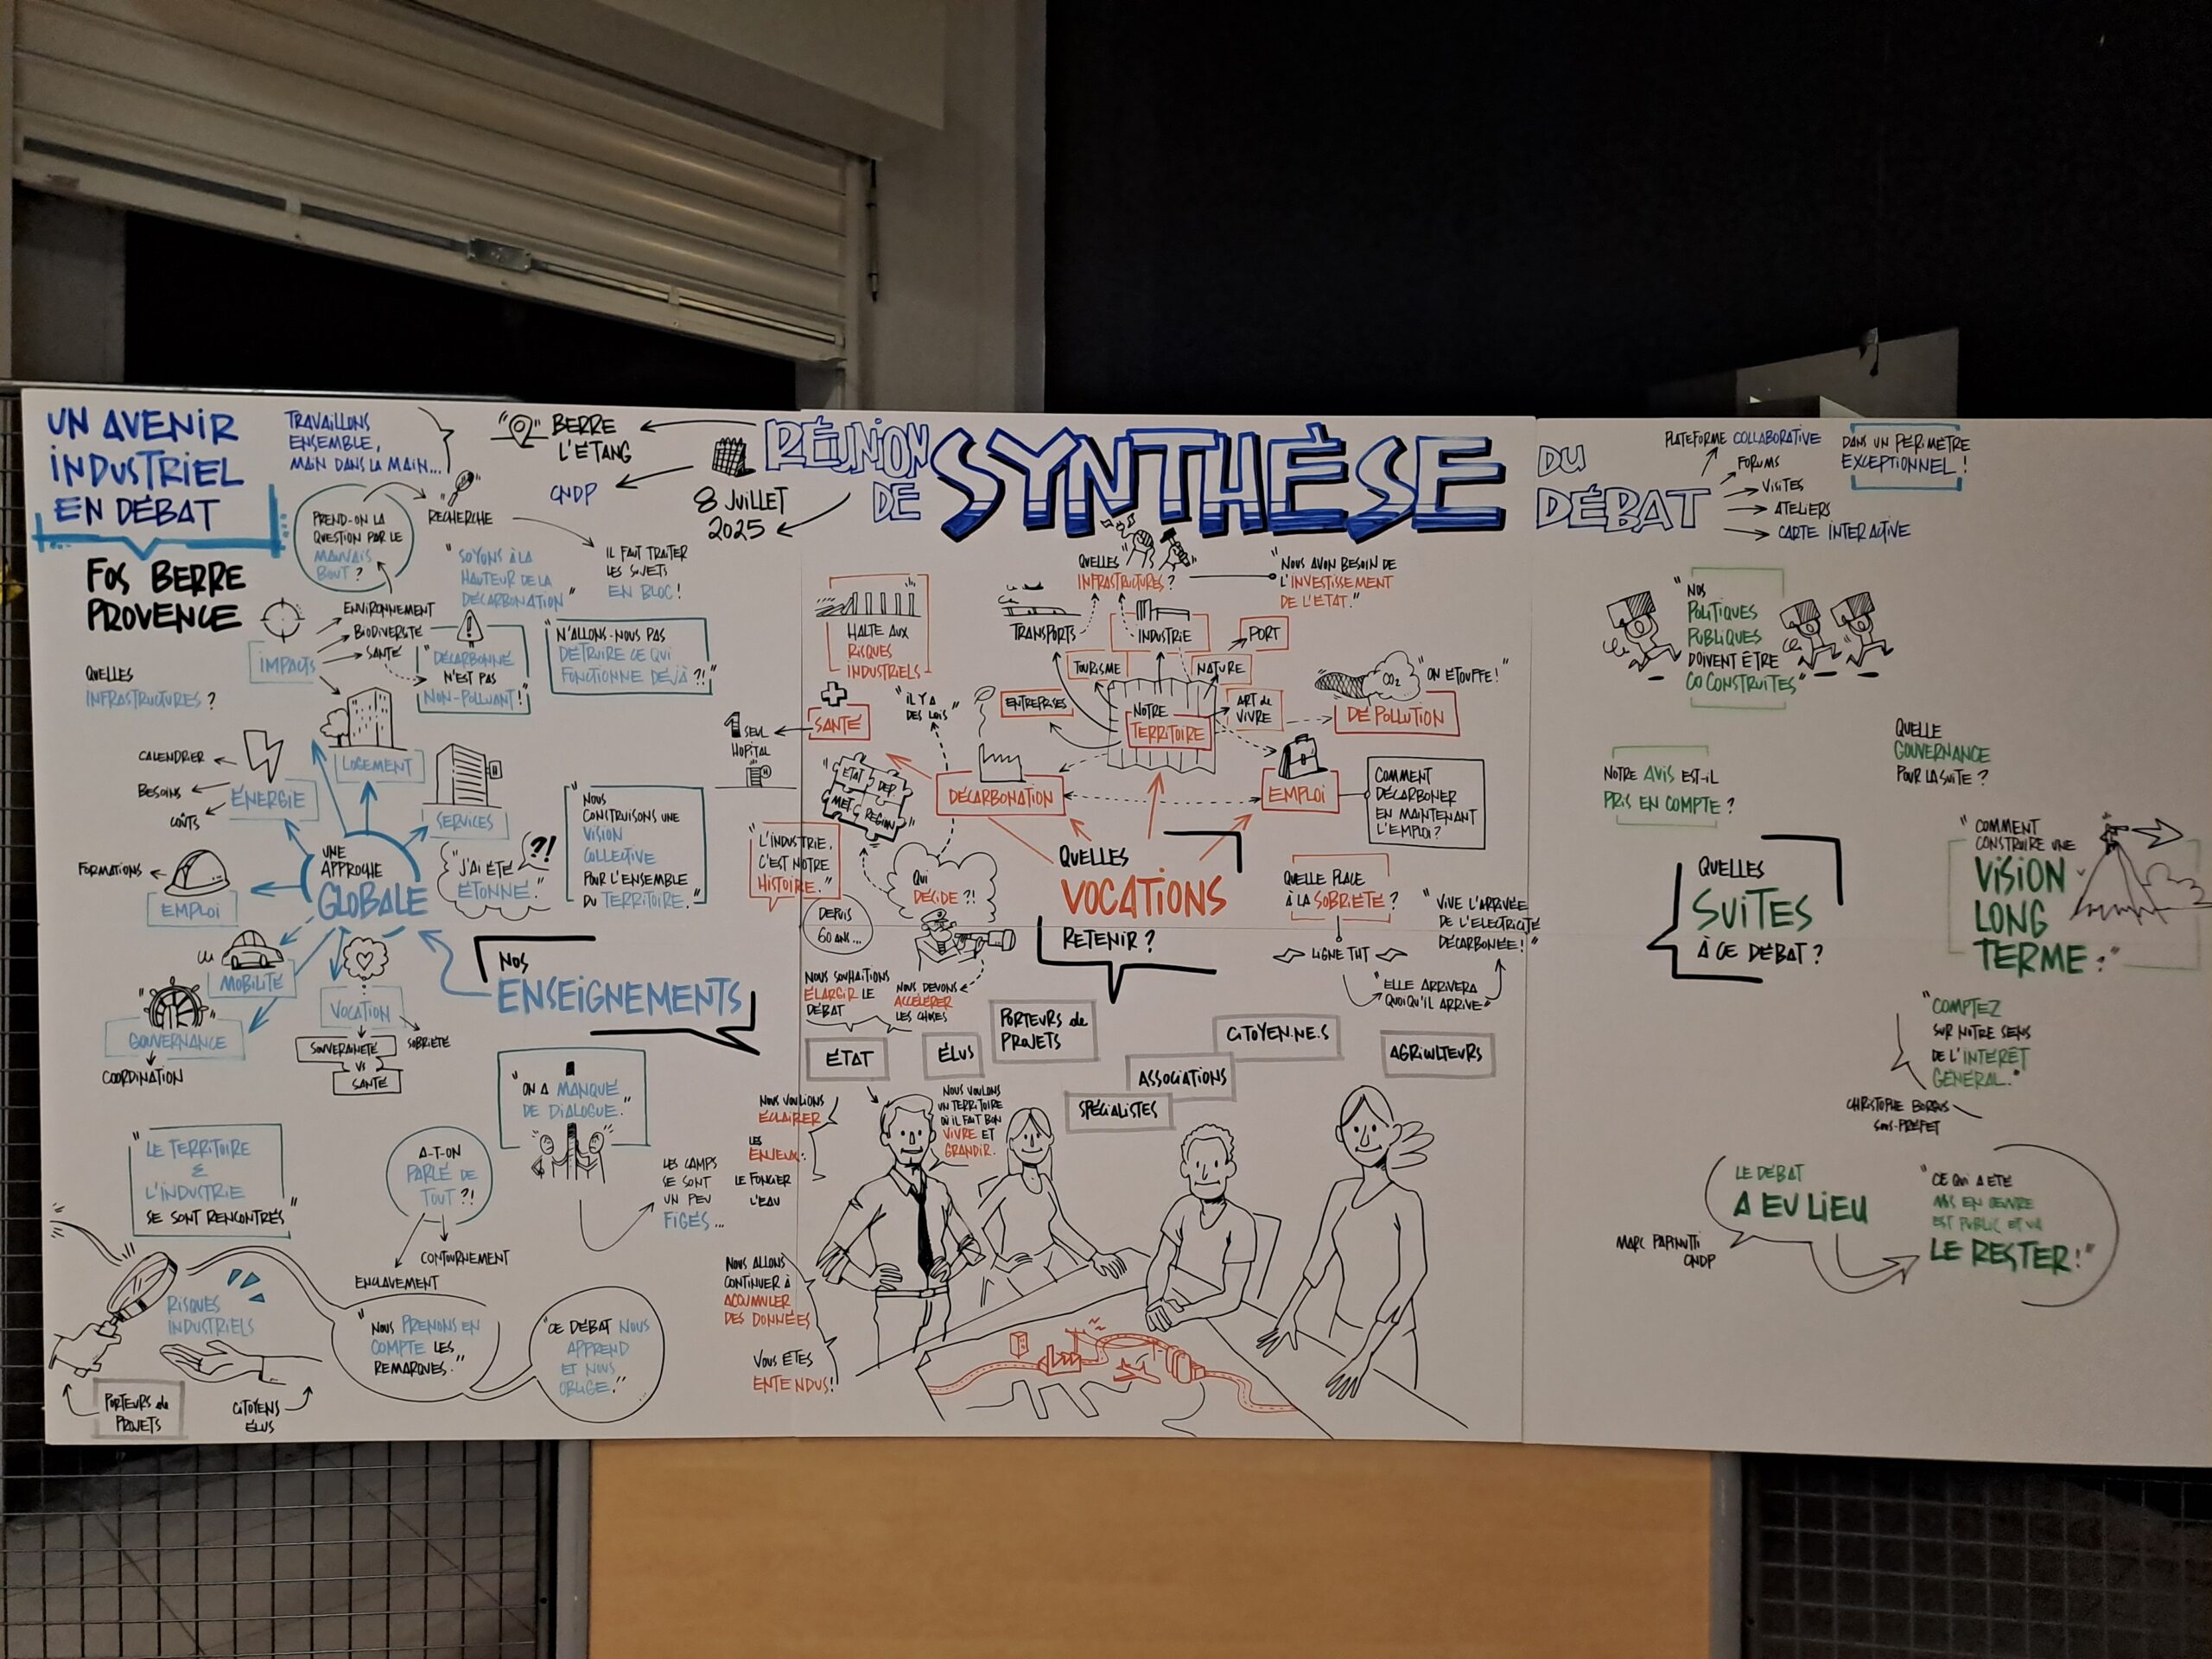 UN AVENIR
INDUSTRIEL
EN DÉBAT
FOS BERRE
PROVENCE
TRAVAILLONS
ENSEMBLE,
MAIN DANS LA MAIN...
BERRE
L'ÉTANG
CNDP
8 JUILLET
2025
RÉUNION
DE
SYNTHÈSE
DU
DÉBAT
PLATEFORME COLLABORATIVE
FORUMS
VISITES
ATELIERS
CARTE INTERACTIVE
DANS UN PÉRIMÈTRE
EXCEPTIONNEL!
PREND-ON LA
QUESTION PAR LE
MAUVAIS
BOUT?
RECHERCHE
"SOYONS À LA
HAUTEUR DE LA
DÉCARBONATION"
IL FAUT TRAITER
LES SUJETS
EN BLOC!
IMPACTS
ENVIRONNEMENT
BIODIVERSITÉ
SANTÉ
"DÉCARBONNÉ
N'EST PAS
NON-POLLUANT!"
"N'ALLONS-NOUS PAS
DÉTRUIRE CE QUI
FONCTIONNE DÉJÀ?!"
QUELLES
INFRASTRUCTURES?
CALENDRIER
BESOINS
COÛTS
ÉNERGIE
LOGEMENT
SERVICES
FORMATIONS
EMPLOI
UNE
APPROCHE
GLOBALE
"J'AI ÉTÉ
ÉTONNÉ."
?!
"NOUS
CONSTRUISONS UNE
VISION
COLLECTIVE
POUR L'ENSEMBLE
DU TERRITOIRE."
MOBILITÉ
GOUVERNANCE
COORDINATION
VOCATION
SOUVERAINETÉ
VS
SANTÉ
SOBRIÉTÉ
NOS
ENSEIGNEMENTS
"ON A MANQUÉ
DE DIALOGUE."
LES CAMPS
SE SONT
UN PEU
FIGÉS...
"LE TERRITOIRE
&
L'INDUSTRIE
SE SONT RENCONTRÉS"
A-T-ON
PARLÉ DE
TOUT?!
CONTOURNEMENT
ENCLAVEMENT
RISQUES
INDUSTRIELS
PORTEURS de
PROJETS
CITOYENS
ÉLUS
"NOUS PRENONS EN
COMPTE LES
REMARQUES."
"CE DÉBAT NOUS
APPREND
ET NOUS
OBLIGE."
HALTE AUX
RISQUES
INDUSTRIELS
SANTÉ
1 SEUL
HOPITAL
H
"IL Y A
DES LOIS"
"ÉTAT
DEP.
MET.
RÉGION"
"L'INDUSTRIE,
C'EST NOTRE
HISTOIRE."
DEPUIS
60 ANS...
QUI
DÉCIDE?!
NOUS SOUHAITIONS
ÉLARGIR LE
DÉBAT
NOUS DEVONS
ACCÉLÉRER
LES CHOSES
QUELLES
INFRASTRUCTURES?
"NOUS AVON BESOIN DE
L'INVESTISSEMENT
DE L'ÉTAT."
TRANSPORTS
INDUSTRIE
PORT
TOURISME
NATURE
ENTREPRISES
NOTRE
TERRITOIRE
ART de
VIVRE
CO2
"ON ÉTOUFFE!"
DÉPOLLUTION
DÉCARBONATION
EMPLOI
COMMENT
DÉCARBONER
EN MAINTENANT
L'EMPLOI?
QUELLES
VOCATIONS
RETENIR?
QUELLE PLACE
À LA SOBRIÉTÉ?
LIGNE THT
"VIVE L'ARRIVÉE
DE L'ELECTRICITÉ
DÉCARBONÉE!"
"ELLE ARRIVERA
QUOIQU'IL ARRIVE"
ÉTAT
ÉLUS
PORTEURS de
PROJETS
SPÉCIALISTES
ASSOCIATIONS
CITOYEN.NE.S
AGRICULTEURS
NOUS VOULIONS
ÉCLAIRER
LES
ENJEUX:
LE FONCIER
L'EAU
NOUS VOULONS
UN TERRITOIRE
OÙ IL FAIT BON
VIVRE ET
GRANDIR.
NOUS ALLONS
CONTINUER À
ACCUMULER
DES DONNÉES
VOUS ÊTES
ENTENDUS!
"NOS
POLITIQUES
PUBLIQUES
DOIVENT ÊTRE
CO CONSTRUITES"
NOTRE AVIS EST-IL
PRIS EN COMPTE?
QUELLE
GOUVERNANCE
POUR LA SUITE?
QUELLES
SUITES
À CE DÉBAT?
"COMMENT
CONSTRUIRE UNE
VISION
LONG
TERME?"
"COMPTEZ
SUR NOTRE SENS
DE L'INTÉRÊT
GÉNÉRAL."
CHRISTOPHE BORGUS
SOUS-PRÉFET
LE DÉBAT
A EU LIEU
MARC PAPINUTTI
CNDP
"CE QUI A ÉTÉ
MIS EN ŒUVRE
EST PUBLIC ET VA
LE RESTER!"